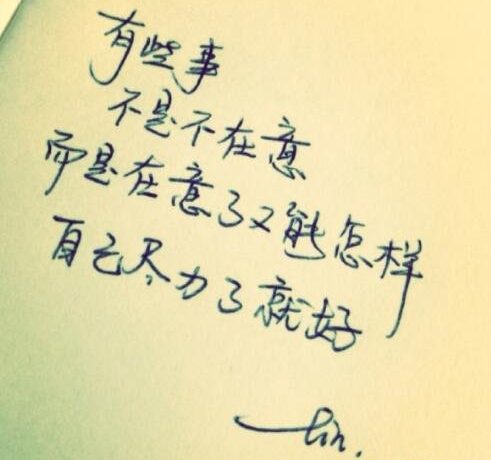 有些事
不是不在意
而是在意了又能怎样
自己尽力了就好
—lin.